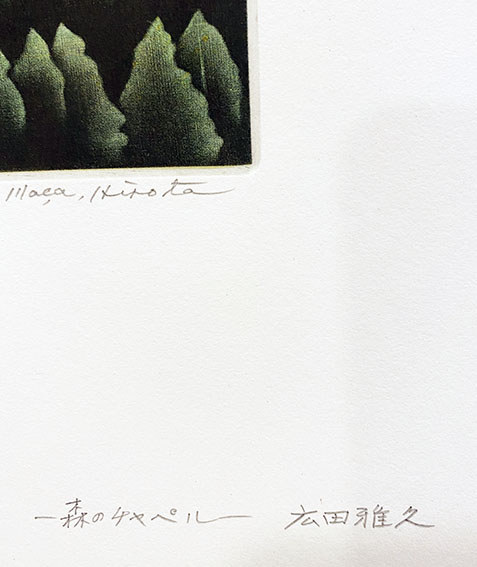 Maça. Hirota
—森のチャペル— 広田雅久